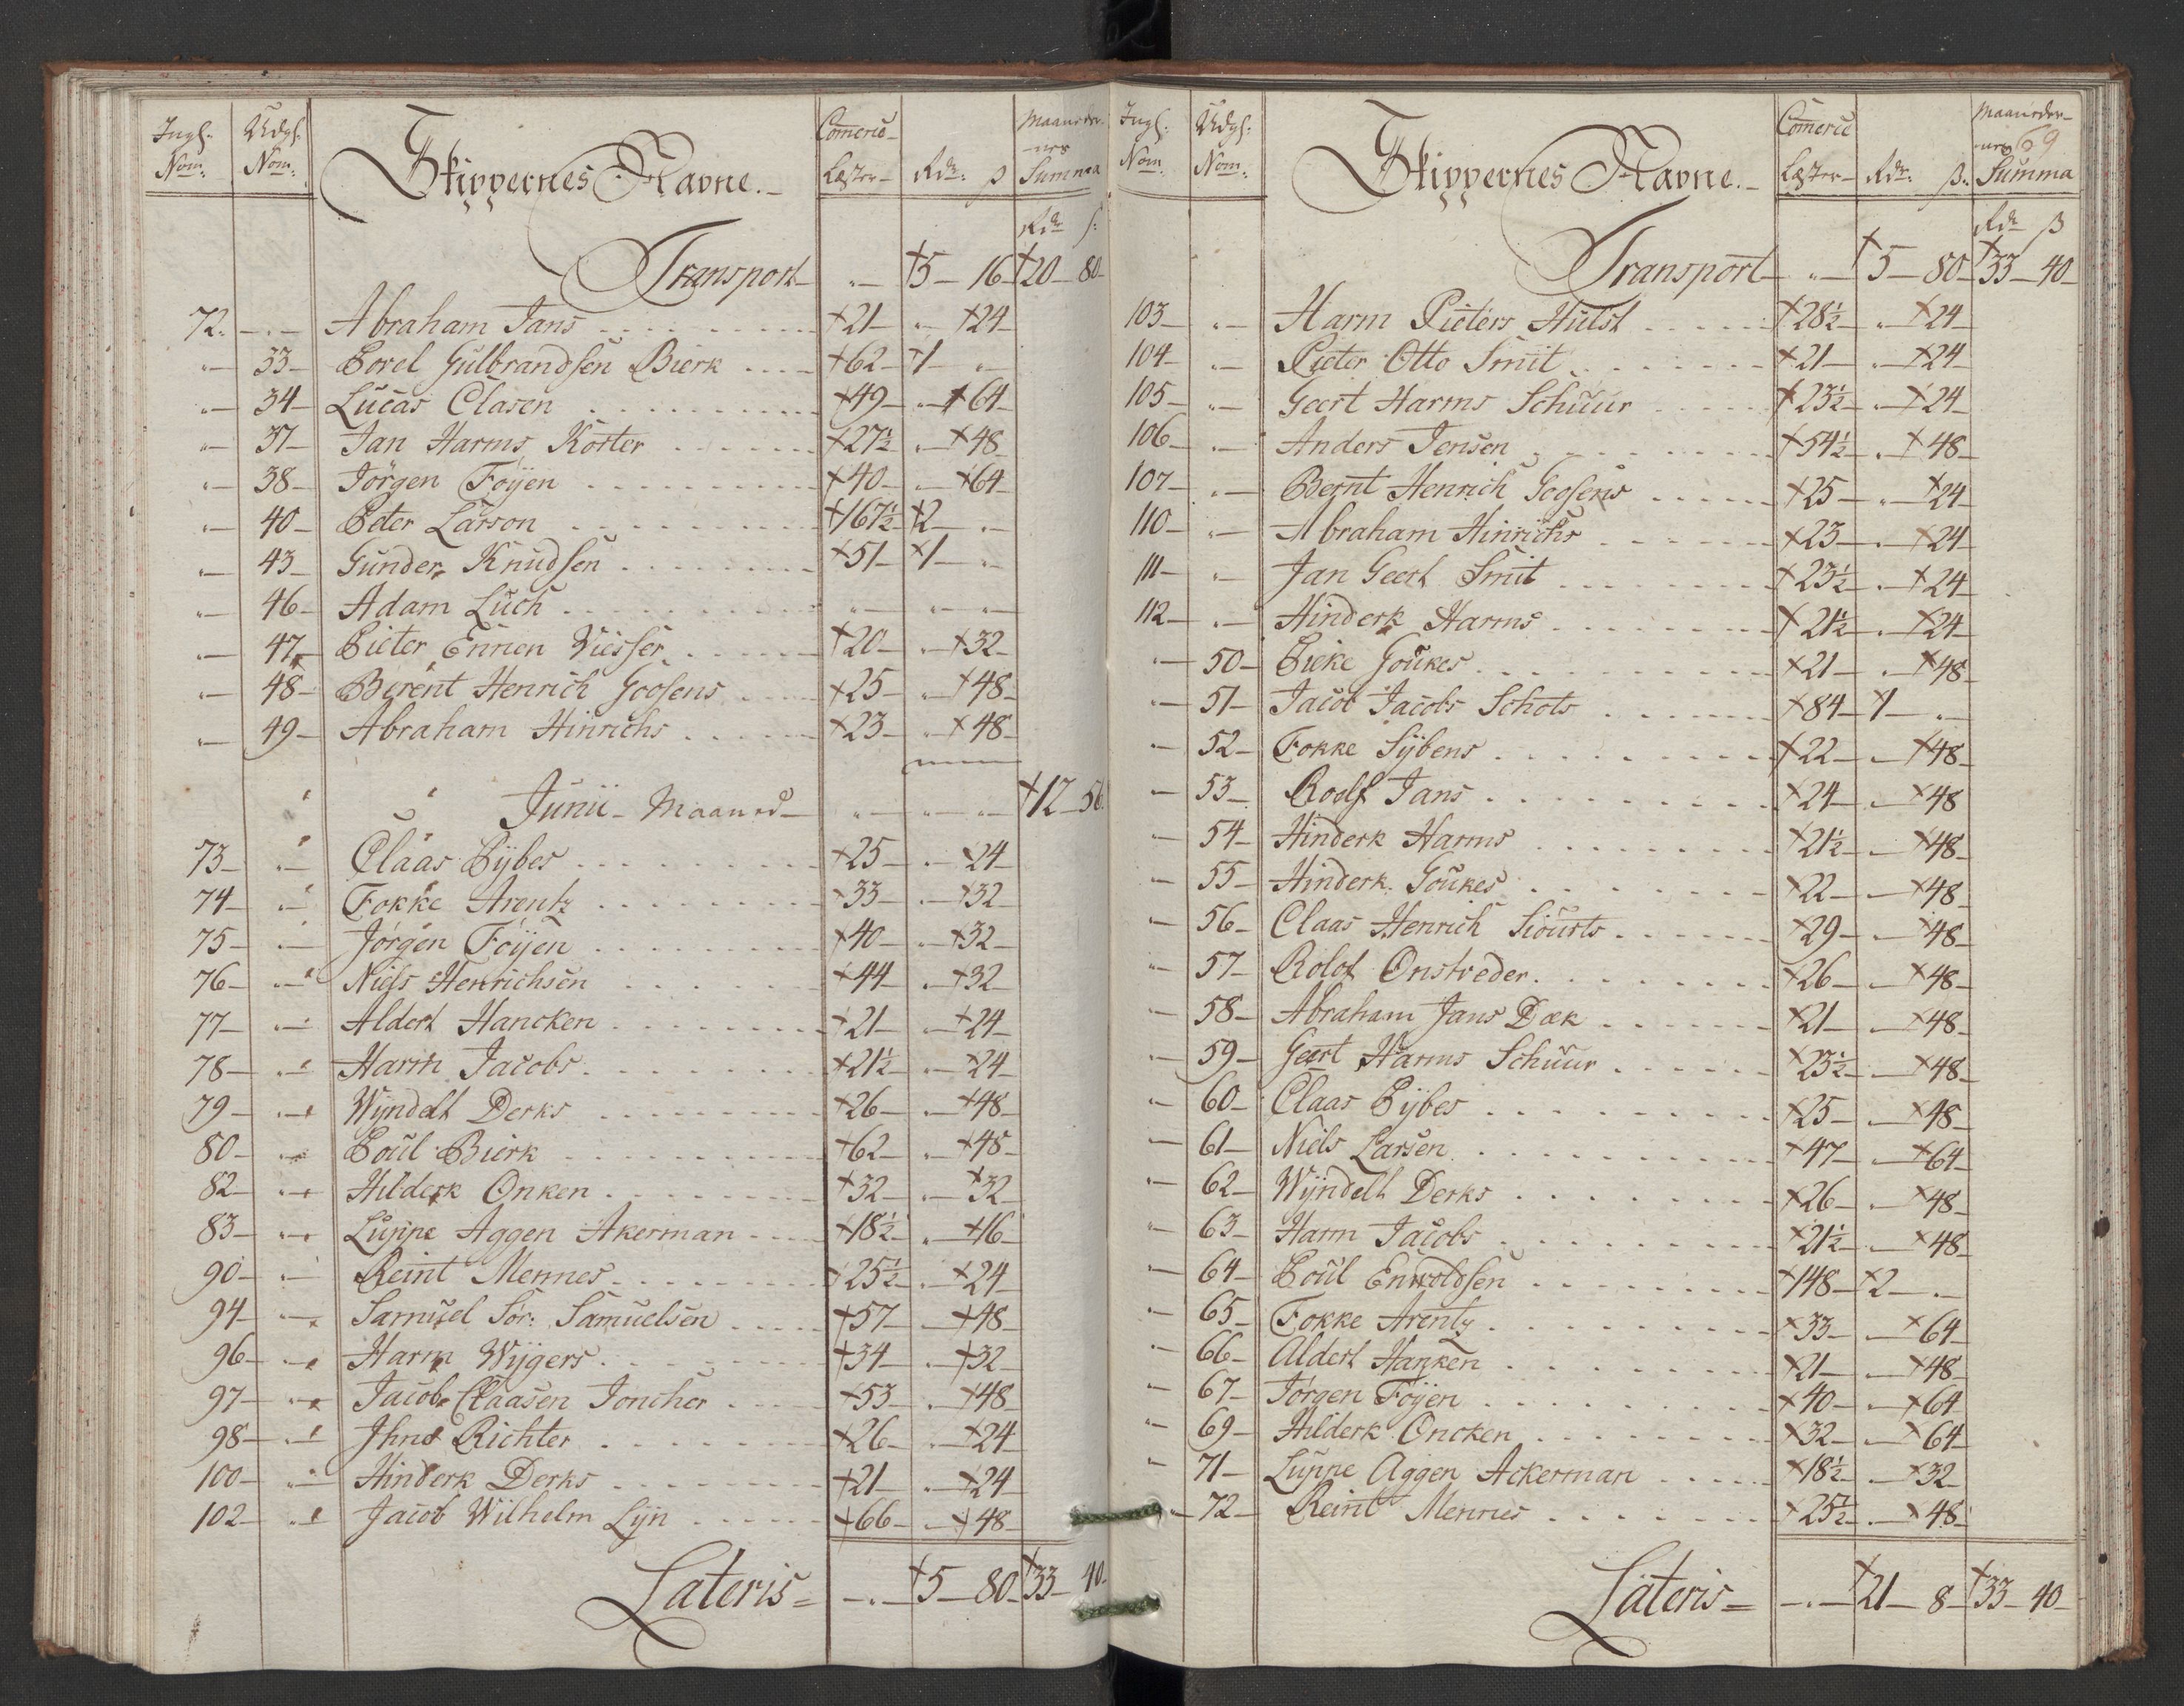 Ingh: Nom: Udgh: Nom: Skippernes Navne. Comerce Læster Rdr: ß Maaneder-nes Summa
Rdr ß:
Transport " 5 16 20 80
72. " Abraham Jans 21 " 24
" 33 Povel Gulbrandsen Bierk 62 1 "
" 34 Lucas Clasen 49 " 64
" 37 Jan Harms Koster 27½ " 48
" 38 Jörgen Föyen 40 " 64
" 40 Peter Larson 167½ 2 "
" 43 Gunder Knudsen 51 1 "
" 46 Adam Luch " " "
" 47 Pieter Ennen Viesser 20 " 32
" 48 Berent Henrich Goosens 25 " 48
" 49 Abraham Hinrichs 23 " 48
Junii Maaned " " " 12 56
73 " Claas Sybes 25 " 24
74 " Fokke Arentz 33 " 32
75 " Jörgen Föyen 40 " 32
76 " Niels Henrichsen 44 " 32
77 " Aldert Hancken 21 " 24
78 " Harm Jacobs 21½ " 24
79 " Wyndelt Derks 26 " 48
80 " Poul Bierk 62 " 48
82 " Hilderk Onken 32 " 32
83 " Luppe Aggen Akerman 18½ " 16
90 " Reint Mennes 25½ " 24
94 " Samuel Sör: Samuelsen 57 " 48
96 " Harm Wygers 34 " 32
97 " Jacob Claasen Joncher 53 " 48
98 " Jhno Richter 26 " 24
100 " Hinderk Derks 21 " 24
102 " Jacob Wilhelm Lyn 66 " 48
Lateris = " 5 80 33 40
Ingh: Nom: Udgh: Nom: Skippernes Navne. Comerce Læster Rdr: ß: Maaneder-nes Summa
69
Rdr ß
Transport " 5 80 33 40
103 " Harm Pieters Hulst 28½ " 24
104 " Pieter Otto Smit 21 " 24
105 " Geert Harms Schuur 23½ " 24
106 " Anders Jensen 54½ " 48
107 " Bernt Henrich Goosens 25 " 24
110 " Abraham Hinrichs 23 " 24
111 " Jan Geert Smit 23½ " 24
112 " Hinderk Harms 21½ " 24
" 50 Sieke Goukes 21 " 48
" 51 Jacob Jacobs Schots 84 1 "
" 52 Fokke Sybens 22 " 48
" 53 Roelf Jans 24 " 48
" 54 Hinderk Harms 21½ " 48
" 55 Hinderk Goukes 22 " 48
" 56 Claas Henrich Siourts 29 " 48
" 57 Rolof Onstveder 26 " 48
" 58 Abraham Jans Dæk 21 " 48
" 59 Geert Harms Schuur 23½ " 48
" 60 Claas Sybes 25 " 48
" 61 Niels Larsen 47 " 64
" 62 Wyndelt Derks 26 " 48
" 63 Harm Jacobs 21½ " 48
" 64 Poul Enwoldsen 148 2 "
" 65 Fokke Arentz 33 " 64
" 66 Aldert Hanken 21 " 48
" 67 Jörgen Föyen 40 " 64
" 69 Hilderk Oncken 32 " 64
" 71 Luppe Aggen Ackerman 18½ " 32
" 72 Reint Mennes 25½ " 48
Lateris = " 21 8 33 40